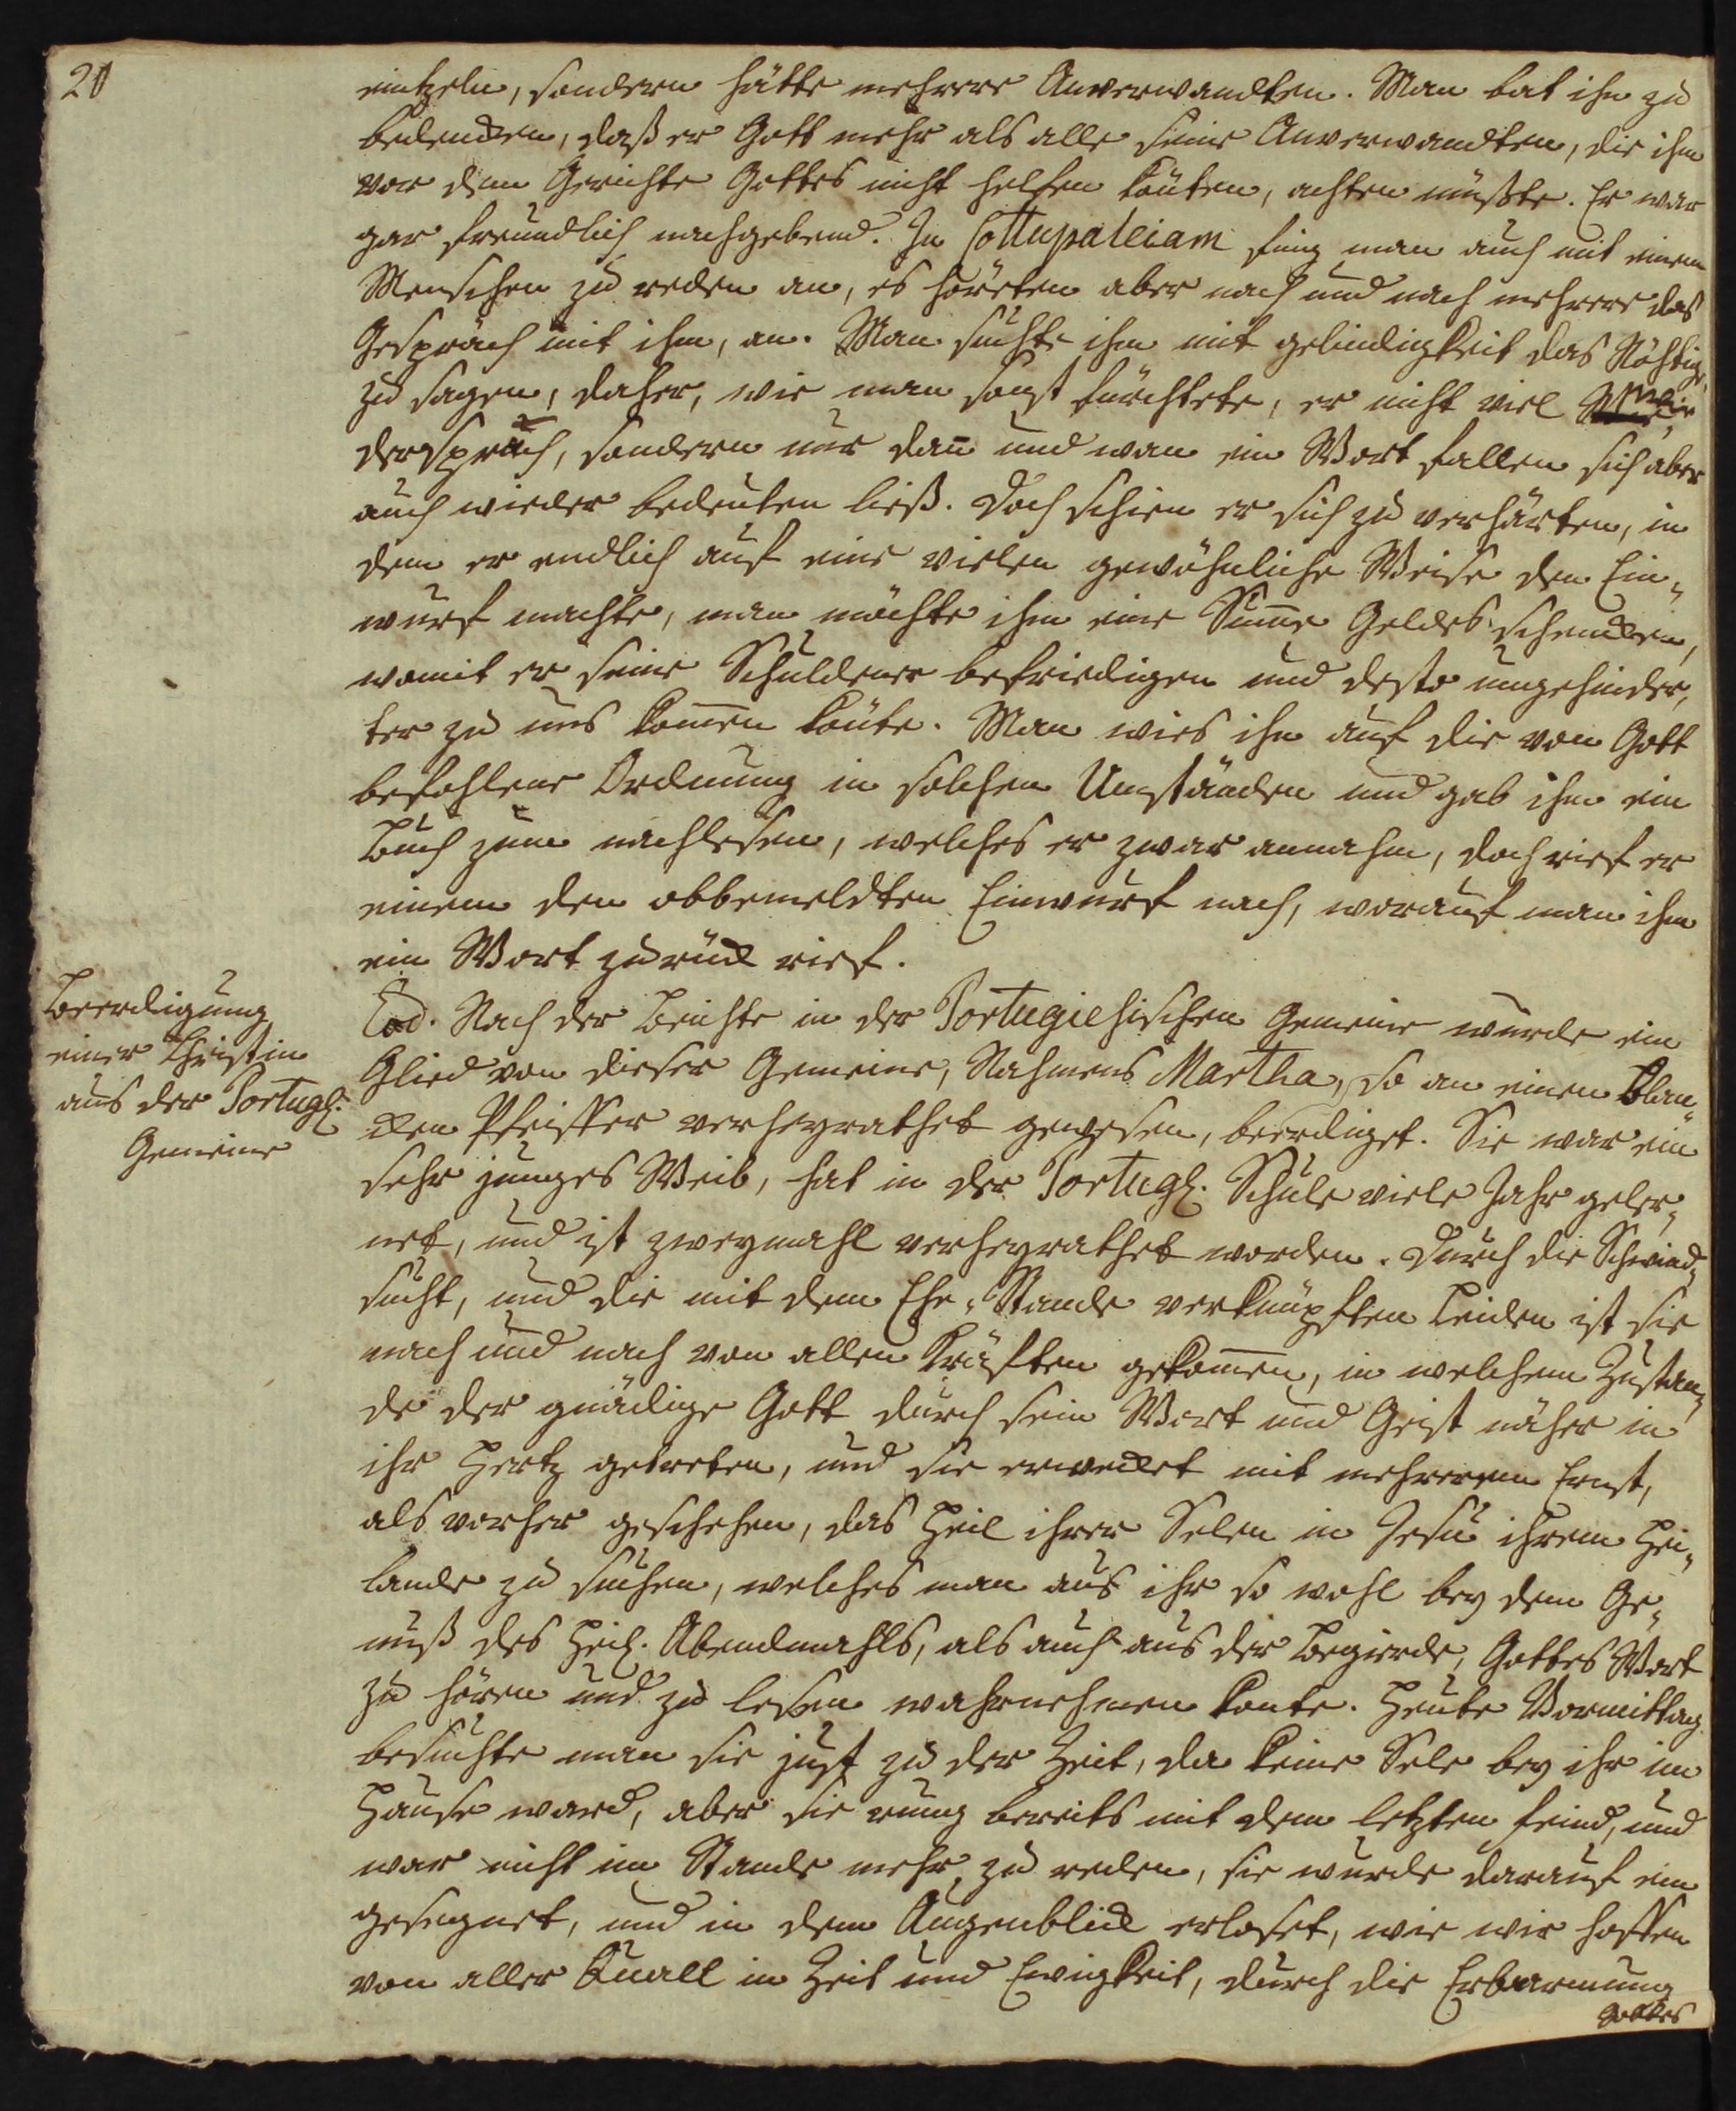 20
eintzeln, sondern hätte mehrere Anverwandten. Man bat ihn zu
bedencken, daß er Gott mehr als alle seine Anverwandten, die ihm
vor dem Gerichte Gottes nicht helfen könten, achten müßte. Er war
gar freundlich nachgebend. In Cottupaleiam fing man auch mit einem
Menschen zu reden an, es höreten aber nach und nach mehrere das
Gespräch mit ihm, an. Man suchte ihm mit gelindigkeit das Nöhtige
zu sagen, daher, wie man sonst fürchtete, er nicht viel wie
dersprach, sondern nur dan̄ und wan ein Wort fallen sich aber
auch wieder bedeuten ließ. Doch schien er sich zu verhärten, in
dem er endlich auf eine vielen gewöhnliche Weise den Ein„
wurf machte, man möchte ihm eine Sum̄e Geldes schencken,
womit er seine Schuldener befriedigen und desto ungehinder„
ter zu uns kom̄en könte. Man wies ihn auf die von Gott
befohlene Ordnung in solchen Umständen und gab ihm ein
Buch zum nachlesen, welches er zwar annahm, doch rief er
einem den obbemeldten Einwurf nach, worauf man ihm
ein Wort zurück rief.
Beerdigung
einer Christin
aus der Portugs.
Gemeine
Eod. Nach der Beichte in der Portugiesischen Gemeine wurde ein
Glied von dieser Gemeine, Nahmens Martha, so an einen Blan„
cken Pfeiffer verheyrathet gewesen, beerdiget. Sie war ein
sehr junges Weib, hat in der Portugs. Schule viele Jahr geler„
net, und ist zweymahl verheyrathet worden. Durch die Schwind„
sucht, und die mit dem Ehe„Stande verknüpften Leiden ist sie
nach und nach von allen Kräften gekom̄en, in welchem Zustan„
de der gnädige Gott durch sein Wort und Geist näher in
ihr Hertz getreten, und sie erwecket mit mehrerem Ernst,
als vorher geschehen, das Heil ihrer Selen in Jesu ihrem Hei„
lande zu suchen, welches man aus ihr so wohl bey dem Ge„
nuß des Heil. Abendmahls, als auch aus der Begierde, Gottes Wort
zu hören und zu lesen wahrnehmen konte. Heute Vormittag
besuchte man sie just zu der Zeit, da keine Sele bey ihr im
Hause ward, aber sie rung bereits mit dem letzten feind, und
war nicht im Stande mehr zu reden, sie wurde darauf ein
gesegnet, und in dem Augenblick erloset, wie wir hoffen
von aller Quall in Zeit und Ewigkeit, durch die Erbarmung
Gottes